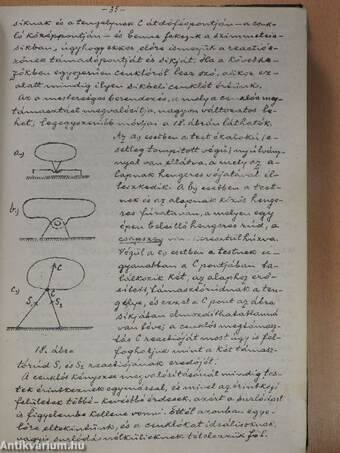 - 35 -
síknak és a tengelynek C átdöféspontján - a csuk-
ló középpontján - és benne fekszik a szimmetria-
síkban, úgyhogy ekkor előre ismerjük a reakció-
erőnek támadópontját és síkját. Ha a követke-
zőkben egyszerűen csuklóról lesz szó, akkor ez-
alatt mindig ilyen síkbeli csuklót értünk.
Az a mesterséges berendezés, a mely a csuklós meg-
támasztást megvalósítja, nagyon változatos le-
het, legegyszerűbb módjai a 18. ábrán láthatók.
Az a, esetben a test ék alakú (e-
setleg tompított végű) nyúlvány-
nyal van ellátva, a mely az a-
lapnak hengeres vájatával il-
leszkedik. A b, esetben a test-
nek és az alapnak közös henge-
res furatavan, a melyen egy
épen beleillő hengeres rúd, a
csapszög van keresztülhúzva.
Végül a c, esetben a testnek
ugyanabban a C pontjában ta-
lálkozik két, az alaphoz erő-
sített támasztórúdnak a ten-
gelye, és ezzel a C pont az ábra
síkjában elmozdíthatatlanná
van téve; a csuklós megtámasz-
tás C reakcióját most úgy is fel-
foghatjuk mint a két támasz-
tórúd S₁ és S₂ reakciójának eredőjét.
A csuklós kényszer megvalósításánál mindig tes-
tek érintkeznek egymással, és mivel az érintkező
felületek többé-kevésbbé érdesek, azért a surlódást
is figyelembe kellene venni. Ettől azonban egye-
lőre eltekintünk, és a csuklókat ideálisoknak,
vagyis surlódás nélkülieknek tételezzük fel.
a,
b,
c,
C
C
S₂
S₁
18. ábra
antikvarium.hu